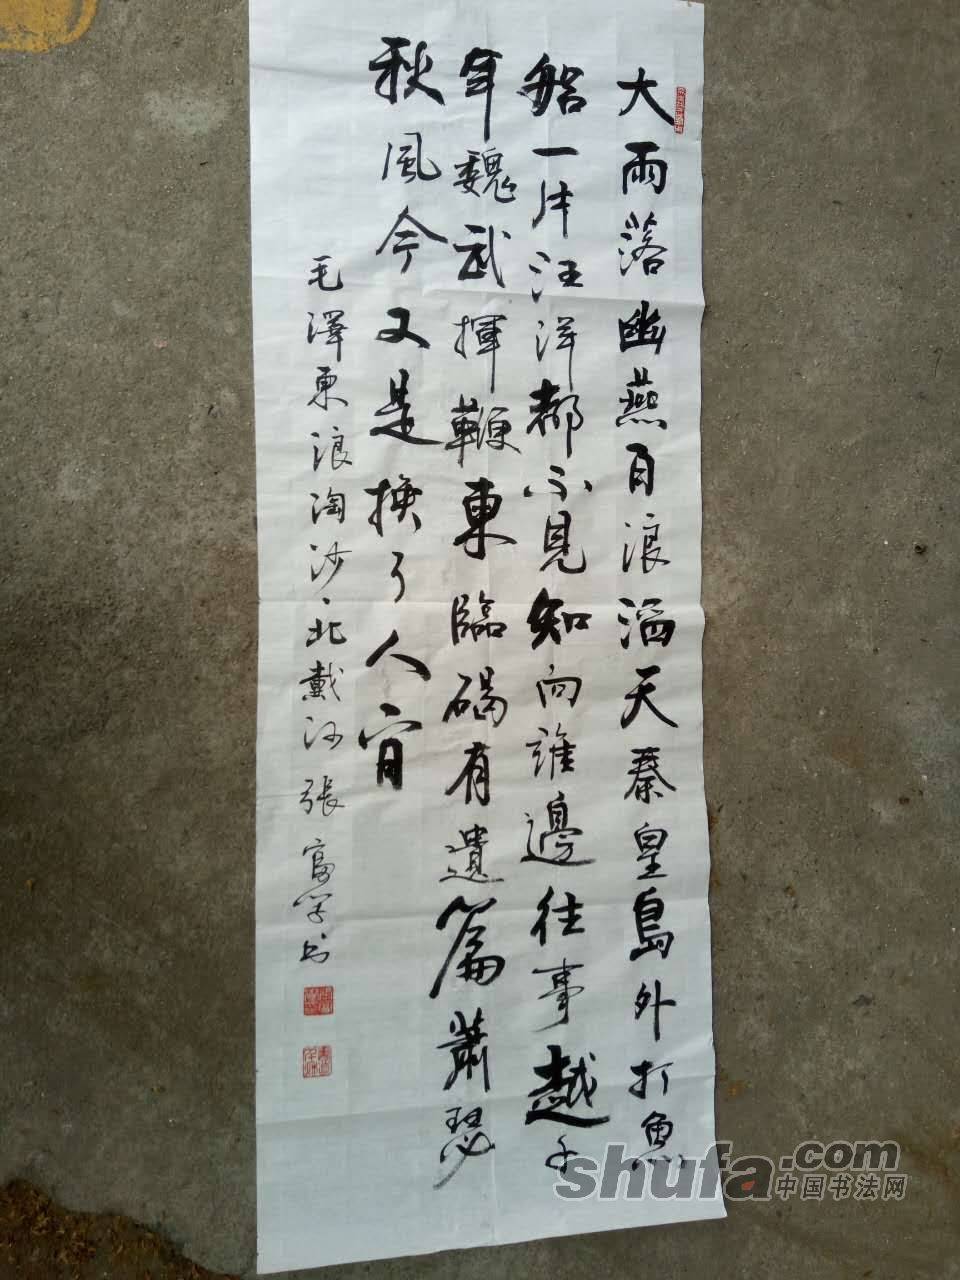 大雨落幽燕白浪滔天秦皇島外打魚
船一片汪洋都不見知向誰邊往事越千
年魏武揮鞭東臨碣有遺篇蕭瑟
秋風今又是換了人間
毛澤東浪淘沙·北戴河 張富学书
shufa.com
中国书法网